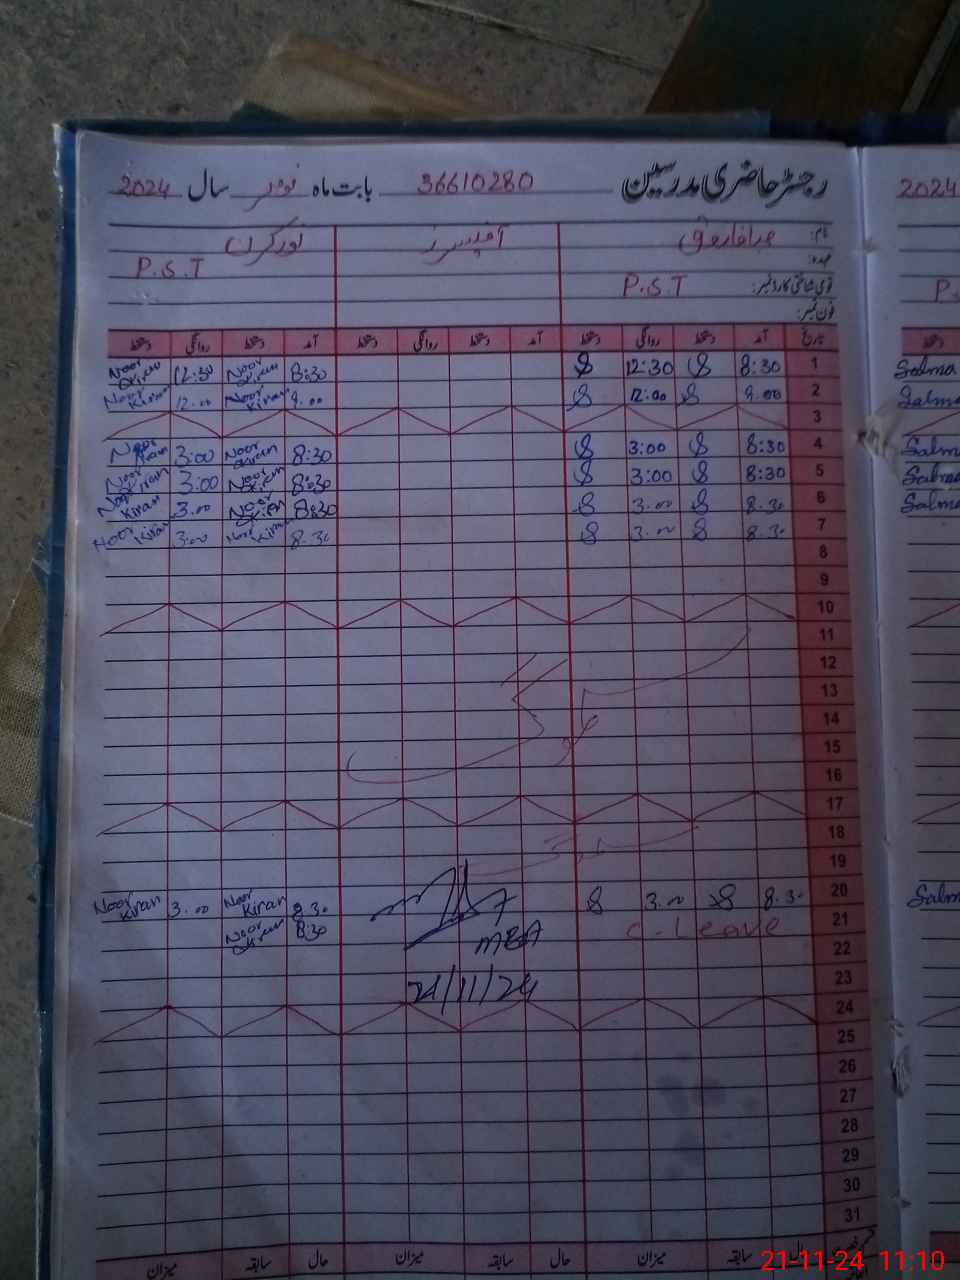 رجسٹر حاضری مدرسین 36610280 بابت ماہ نومبر سال 2024
2024
نام: آفیسرز نور کرن
عہدہ: P.S.T
قومی شناختی کارڈ نمبر: P.S.T
فون نمبر:
تاریخ آمد دستخط روانگی دستخط آمد دستخط روانگی دستخط آمد دستخط روانگی دستخط
1 8:30 12:30 8:30 Noor Kiran 12:30 Noor Kiran Salma
2 9.00 12:00 9.00 Noor Kiran 12.00 Noor Kiran Salma
3
4 8:30 3:00 8:30 Noor Kiran 3:00 Noor Kiran Salma
5 8:30 3:00 8:30 Noor Kiran 3:00 Noor Kiran Salma
6 8.30 3.00 8:30 Noor Kiran 3.00 Noor Kiran Salma
7 8.30 3.00 8.30 Noor Kiran 3.00 Noor Kiran
8
9
10
11
12
13
14
15
16
17
18
19
20 8.30 3.00 8.30 Noor Kiran 3.00 Noor Kiran Salm
21 C. Leave 8:30 Noor Kiran
MEA
22
23
21/11/24
24
25
26
27
28
29
30
31
حال سابقہ میزان حال سابقہ میزان حال سابقہ میزان
21-11-24 11:10